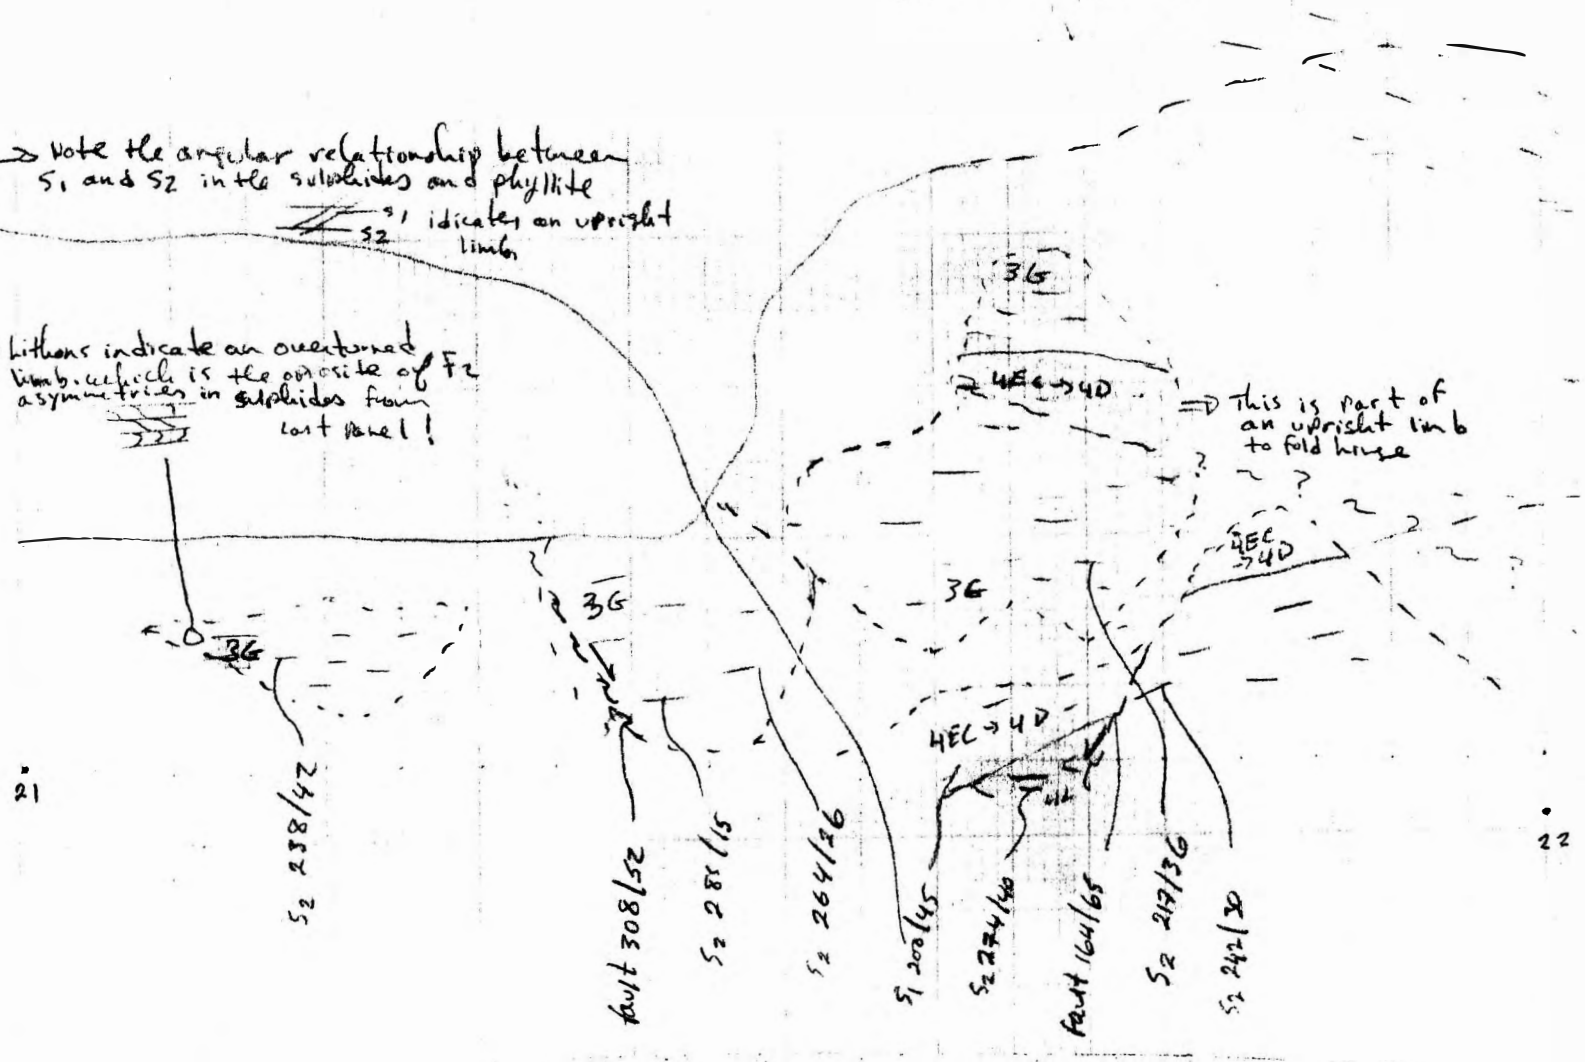 → Note the angular relationship between
S1 and S2 in the sulphides and phyllite
S1 idicates an upright
S2 limb
3G
Lithons indicate an overturned
limb. which is the oposite of F2
asymmetries in sulphides from
last panel!
4EC→4D
⇒ This is part of
an upright limb
to fold hinge
? ?
4EC
→4D
?
3G
3G
3G
4EC→4D
21
22
S2 238/42
fault 308/52
S2 281/15
S2 264/26
S1 200/45
S2 274/40
Fault 164/65
S2 217/36
S2 242/30